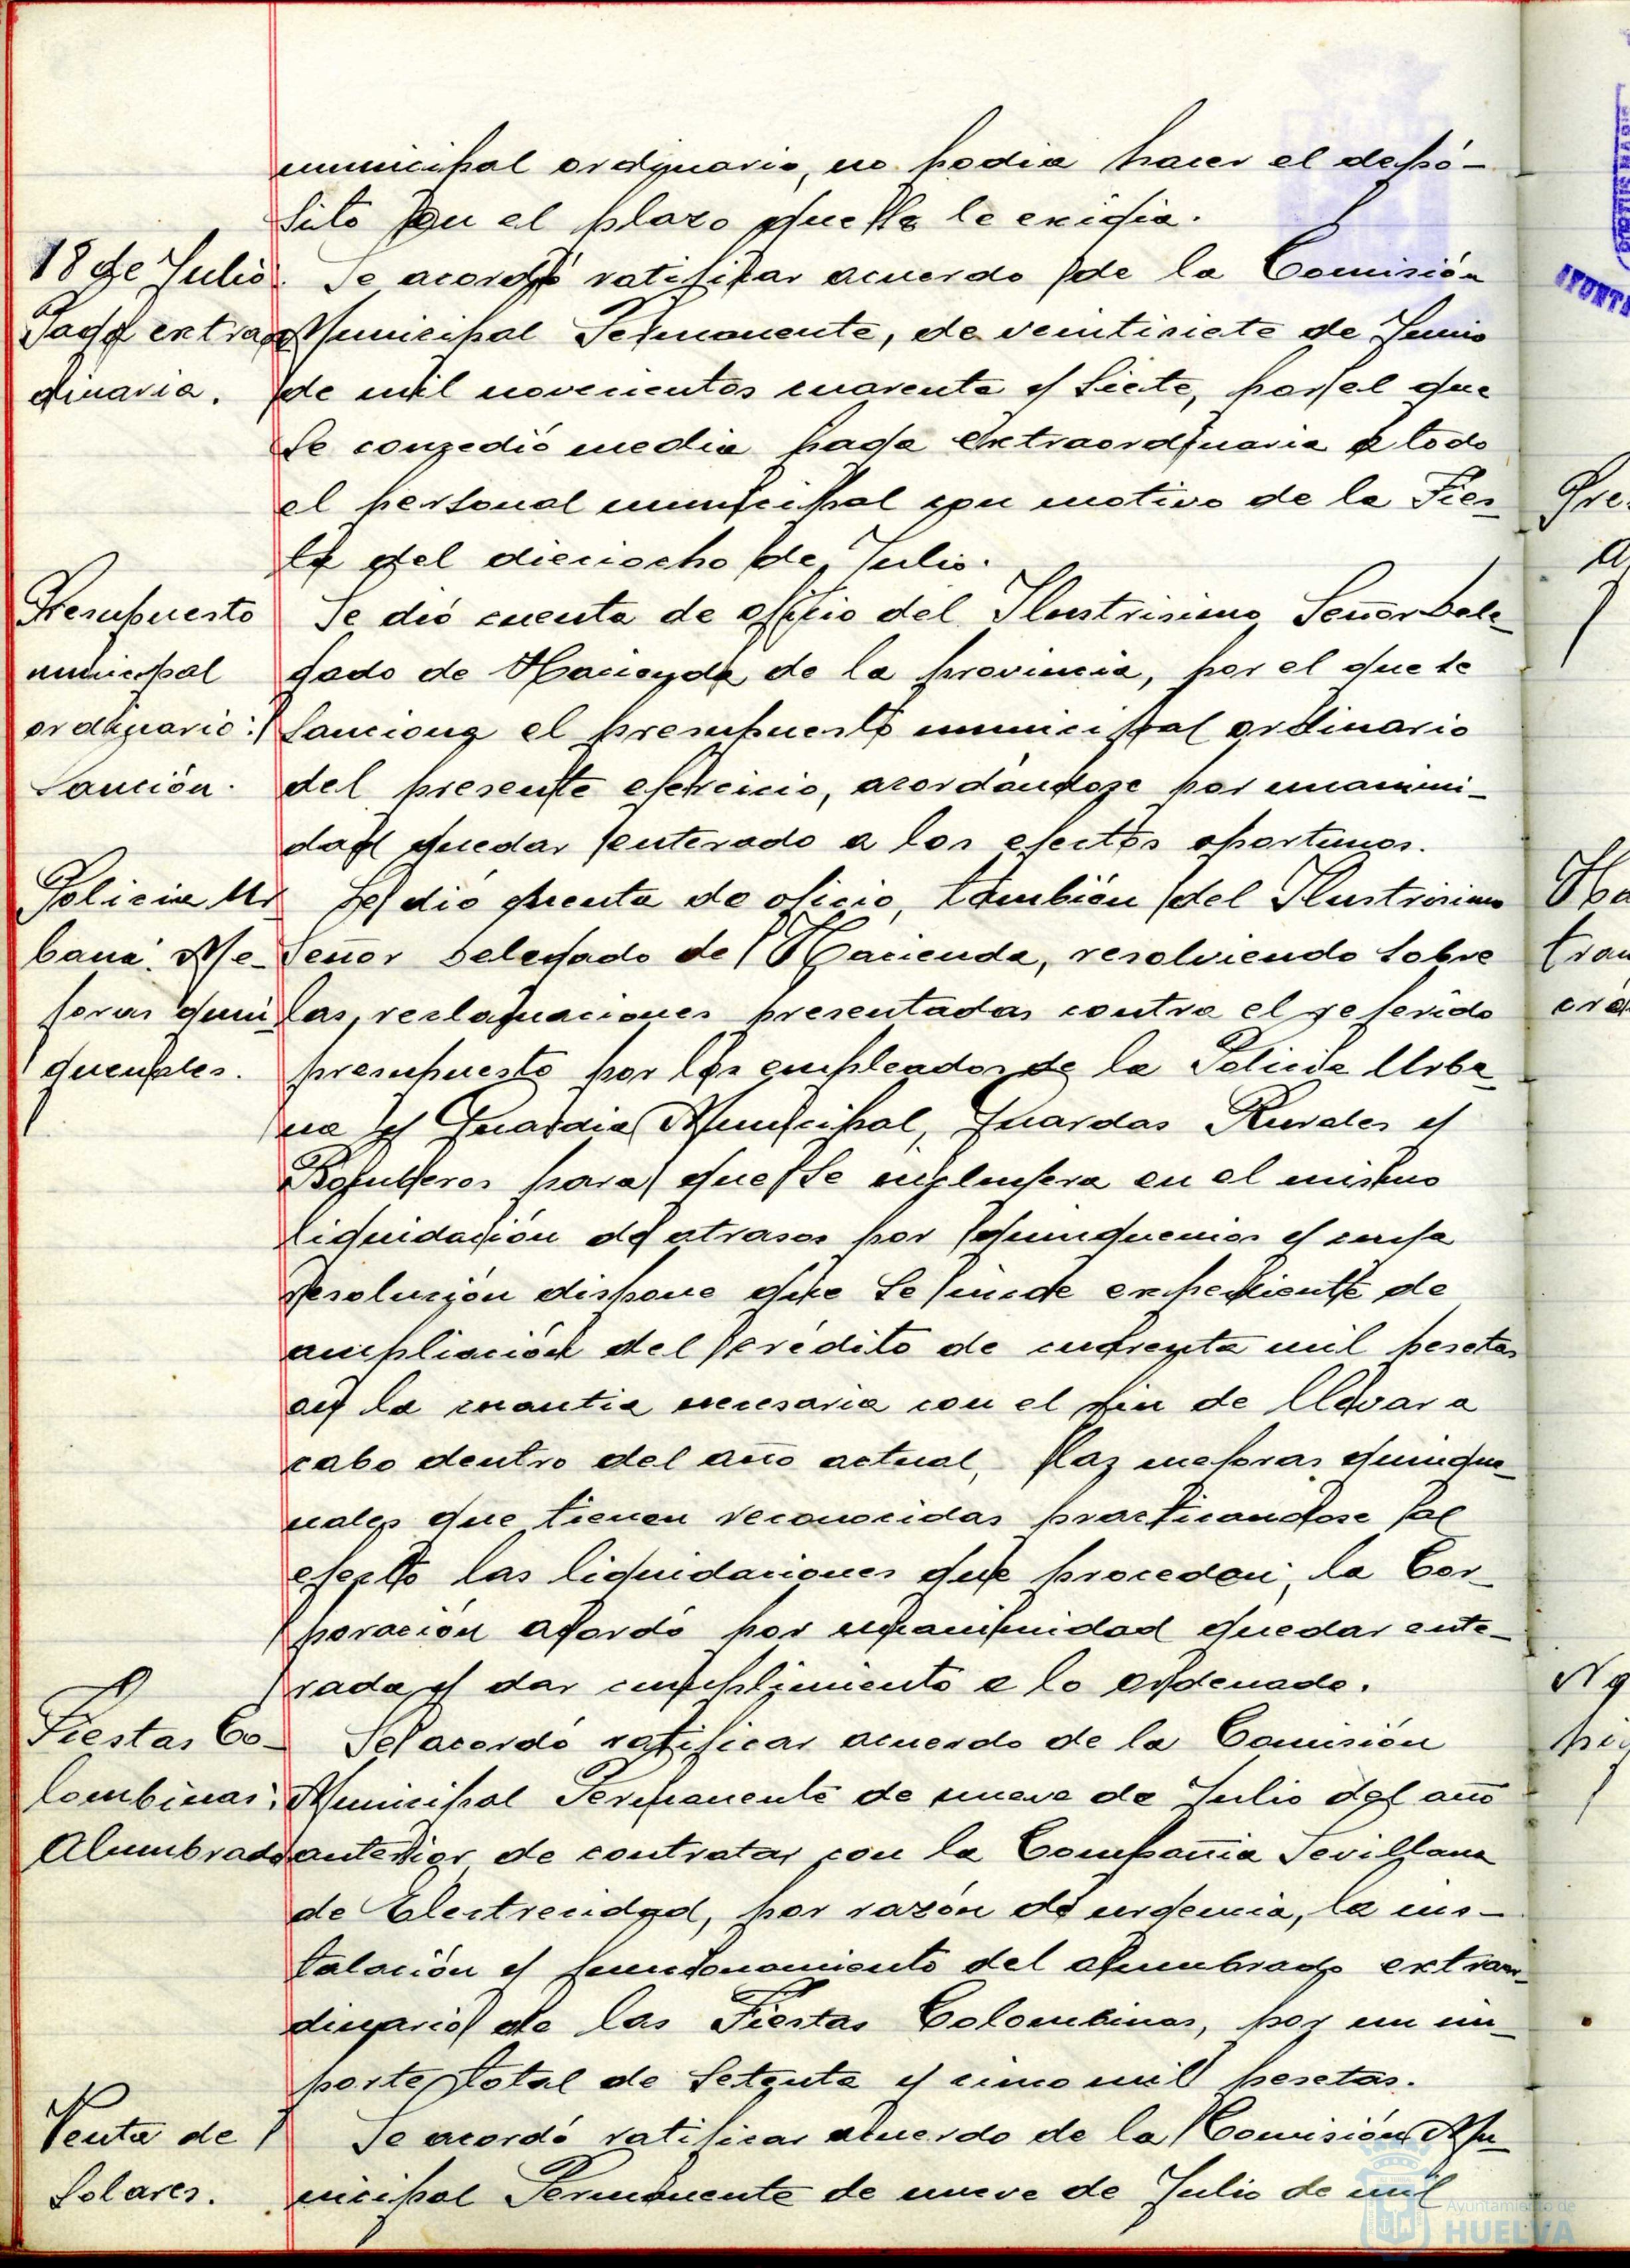 municipal ordinario, no podia hacer el depó-
sito en el plazo que se le exigia.
18 de Julio. Se acordó ratificar acuerdo de la Comisión
Paga extraor Municipal Permanente, de veintisiete de Junio
dinaria. de mil novecientos cuarenta y siete, por el que
se concedió media paga extraordinaria a todo
el personal municipal con motivo de la Fies-
ta del dieciocho de Julio.
Presupuesto Se dió cuenta de oficio del Ilustrisimo Señor Dele-
municipal gado de Hacienda de la provincia, por el que se
ordinario: sanciona el presupuesto municipal ordinario
Sanción. del presente ejercicio, acordándose por unanimi-
dad quedar enterado a los efectos oportunos.
Policia Ur Se dió cuenta de oficio, también del Ilustrisimo
bana. Me- Señor Delegado de Hacienda, resolviendo sobre
joras quin las reclamaciones presentadas contra el referido
quenales. presupuesto por los empleados de la Policia Urba-
na y Guardia Municipal, Guardas Rurales y
Bomberos para que se incluyera en el mismo
liquidación de atrasos por quinquenios y cuya
resolución dispone que se incide expediente de
ampliación del crédito de cuarenta mil pesetas
en la cuantia necesaria con el fin de llevar a
cabo dentro del año actual, las mejoras quinque-
nales que tienen reconocidas practicandose al
efecto las liquidaciones que procedan; la Cor-
poración acordó por unanimidad quedar ente-
rada y dar cumplimiento a lo ordenado.
Fiestas Co- Se acordó ratificar acuerdo de la Comisión
lombinas: Municipal Permanente de nueve de Julio del año
Alumbrado anterior de contratar con la Compañia Sevillana
de Electrecidad, por razón de urgencia, la ins-
talación y funcionamiento del alumbrado extraor-
dinario de las Fiestas Colombinas, por un im-
porte total de setenta y cinco mil pesetas.
Venta de Se acordó ratificar acuerdo de la Comisión Mu-
Solares. nicipal Permanente de nueve de Julio de mil
Ayuntamiento de
HUELVA